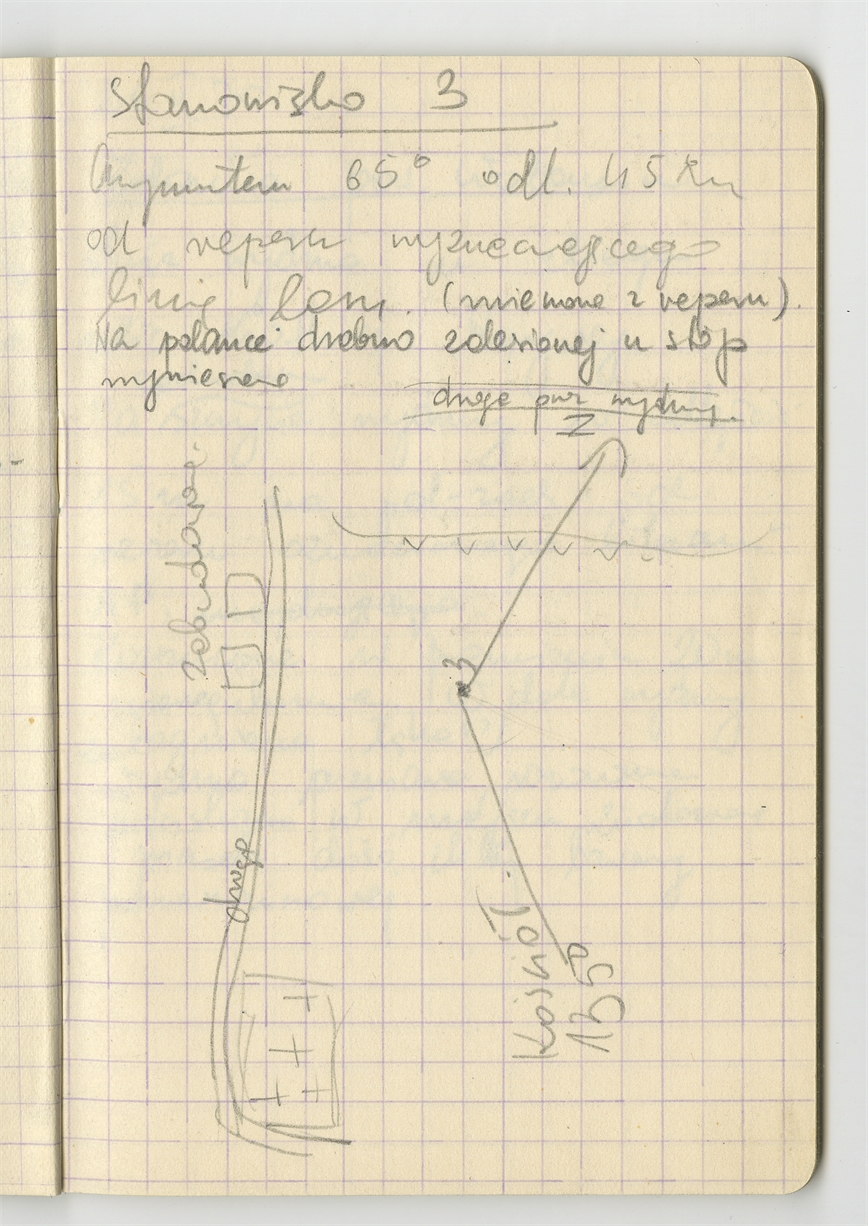 Stanowisko 3
Azymutem 65° odl. 45 km
od reperu wyznaczającego
linię lasu. (mierzone z reperu).
Na polance drobno zalesionej u stóp
wyniesienia
droga
N
zabudowania
3
droga
Kościół
135°